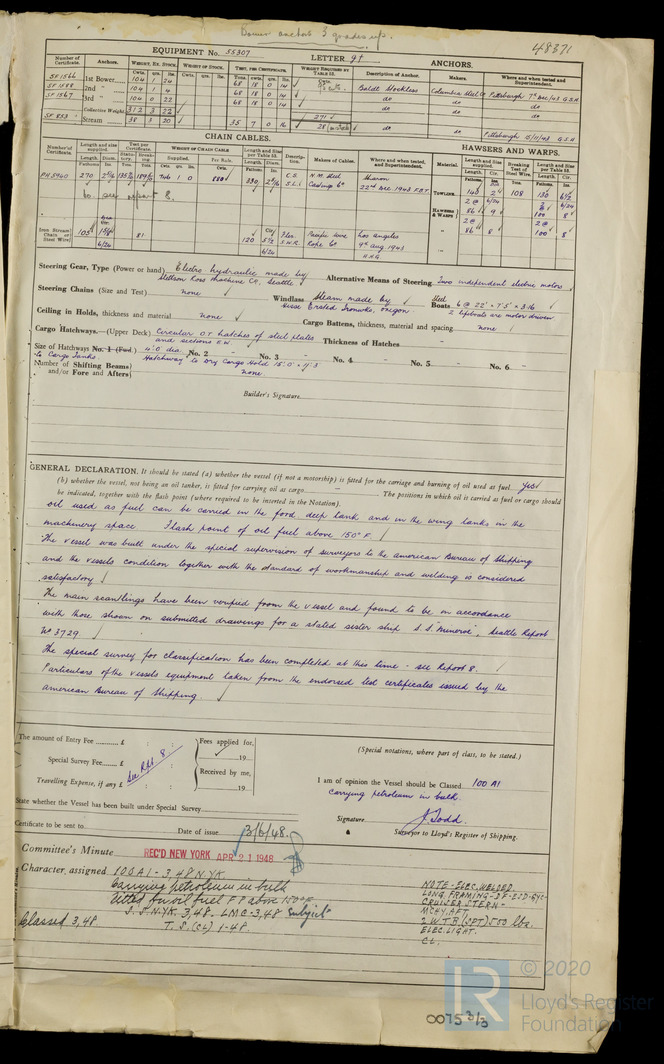 Bower anchors 3 grades up.
48371
EQUIPMENT No. 55307 LETTER g† ANCHORS.
Number of Certificate. Anchors. WEIGHT, EX. STOCK. WEIGHT OF STOCK. TEST, PER CERTIFICATE. WEIGHT REQUIRED BY TABLE 53. Description of Anchor. Makers. Where and when tested and Superintendent.
Cwts. qrs. lbs. Cwts. qrs. lbs. Tons. cwts. qrs. lbs. Cwts.
SF 1566 1st Bower 104 1 24 68 18 0 14 Baldt Stockless Columbia Steel Co Pittsburgh 7th Dec/43 G.S.H
SF 1588 2nd " 104 1 4 68 18 0 14 do do do
SF 1567 3rd " 104 0 22 68 18 0 14 do do do
Collective Weight 312 3 22 271
SF 853 Stream 38 3 20 35 7 0 16 28 do do Pittsburg 15/11/43 G.S.H
CHAIN CABLES. HAWSERS AND WARPS.
Number of Certificate. Length and size supplied. Test per Certificate. WEIGHT OF CHAIN CABLE Length and Size per Table 53. Description. Makers of Cables. Where and when tested, and Superintendent. Material. Length and Size supplied. Breaking Test of Steel Wire. Length and Size per Table 53.
Supplied. Per Rule.
PH 5940 270 2 5/16 746 1 0 330 2 5/16 C.S. S.L. N.M. Steel Castings Co Sharon 22nd Dec 1943 F.B.T. TOWLINE 140 2" 6/24 108 130
HAWSERS & WARPS 2 @ 86 9 2 @ 100 8
2 @ 86 8 2 @ 100 8
Iron Stream Chain or Steel Wire 105 6/24 81 120 5 1/2 6/24 Flex. S.W.R. Pacific Wire Rope Co Los Angeles 9th Aug. 1943
Steering Gear, Type (Power or hand) Electro hydraulic made by Stetson Ross Machine Co, Seattle Alternative Means of Steering Two independent electric motors
Steering Chains (Size and Test) none Windlass Steam made by Hesse Ersted Ironwks, Oregon Steel Boats 6 @ 22' × 7'5" × 3'16 2 lifeboats are motor driven
Ceiling in Holds, thickness and material none Cargo Battens, thickness, material and spacing none
Cargo Hatchways.—(Upper Deck) Circular O.T. hatches of steel plates and sections E.W. Thickness of Hatches
Size of Hatchways No. 1 (Fwd) 4'0 dia. No. 2 No. 3 No. 4 No. 5 No. 6
to Cargo Tanks Hatchway to Dry Cargo Hold 15'0" × 11'3
Number of Shifting Beams and/or Fore and Afters none
Builder's Signature
GENERAL DECLARATION. It should be stated (a) whether the vessel (if not a motorship) is fitted for the carriage and burning of oil used as fuel yes
(b) whether the vessel, not being an oil tanker, is fitted for carrying oil as cargo — The positions in which oil is carried as fuel or cargo should
be indicated, together with the flash point (where required to be inserted in the Notation).
oil used as fuel can be carried in the ford deep tank and in the wing tanks in the
machinery space Flash point of oil fuel above 150°F.
The vessel was built under the special supervision of surveyors to the American Bureau of Shipping
and the vessels condition together with the standard of workmanship and welding is considered
satisfactory
The main scantlings have been verified from the vessel and found to be in accordance
with those shown on submitted drawings for a stated sister ship S.S. "Minerve", Seattle Report
No 3729
The special survey for classification has been completed at this time - see Report 8.
Particulars of the vessels equipment taken from the endorsed test certificates issued by the
American Bureau of Shipping.
The amount of Entry Fee £ : : Fees applied for, (Special notations, where part of class, to be stated.)
Special Survey Fee £ See Rpt 8. 19
Travelling Expense, if any £ Received by me, 19
I am of opinion the Vessel should be Classed 100 A1
Carrying petroleum in bulk.
State whether the Vessel has been built under Special Survey
Signature J. Todd.
Certificate to be sent to Date of issue 3/6/48. Surveyor to Lloyd's Register of Shipping.
Committee's Minute REC'D NEW YORK APR 21 1948
Character assigned 100A1-3,48 N.YK.
Carrying petroleum in bulk
Fitted for oil fuel F.P. above 150°F
S.S. N.YK. 3,48. LMC-3,48 Subject
Classed 3,48 T.S.(CL) 1-48.
NOTE-ELEC. WELDED
LONG. FRAMING-DF-ESD-GYC-
CRUISER STERN-
MCHY. AFT
2 W.T.B.(SPT) 550 lbs.
ELEC. LIGHT.
CL.
LR
© 2020
Lloyd's Register
Foundation
0075 3/3